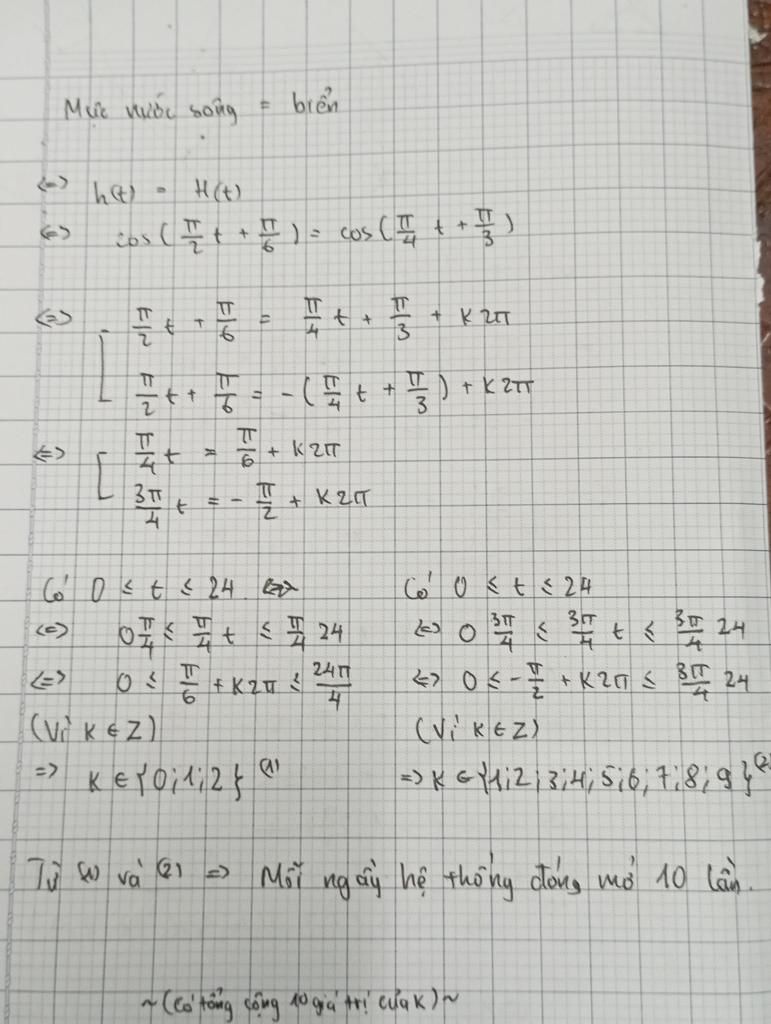 Mực nước sông = biển
<=> h(t) = H(t)
<=> cos(π/2 t + π/6) = cos(π/4 t + π/3)
<=> [ π/2 t + π/6 = π/4 t + π/3 + K2π
π/2 t + π/6 = -(π/4 t + π/3) + K2π
<=> [ π/4 t = π/6 + K2π
3π/4 t = -π/2 + K2π
Có 0 ≤ t ≤ 24
<=> 0 π/4 ≤ π/4 t ≤ π/4 24
<=> 0 ≤ π/6 + K2π ≤ 24π/4
(Vì K ∈ Z)
=> K ∈ {0;1;2} (1)
Có 0 ≤ t ≤ 24
<=> 0 3π/4 ≤ 3π/4 t ≤ 3π/4 24
<=> 0 ≤ -π/2 + K2π ≤ 3π/4 24
(Vì K ∈ Z)
=> K ∈ {1;2;3;4;5;6;7;8;9} (2)
Từ (1) và (2) => Mỗi ngày hệ thống đóng mở 10 lần.
~(Có tổng cộng 10 giá trị của K)~